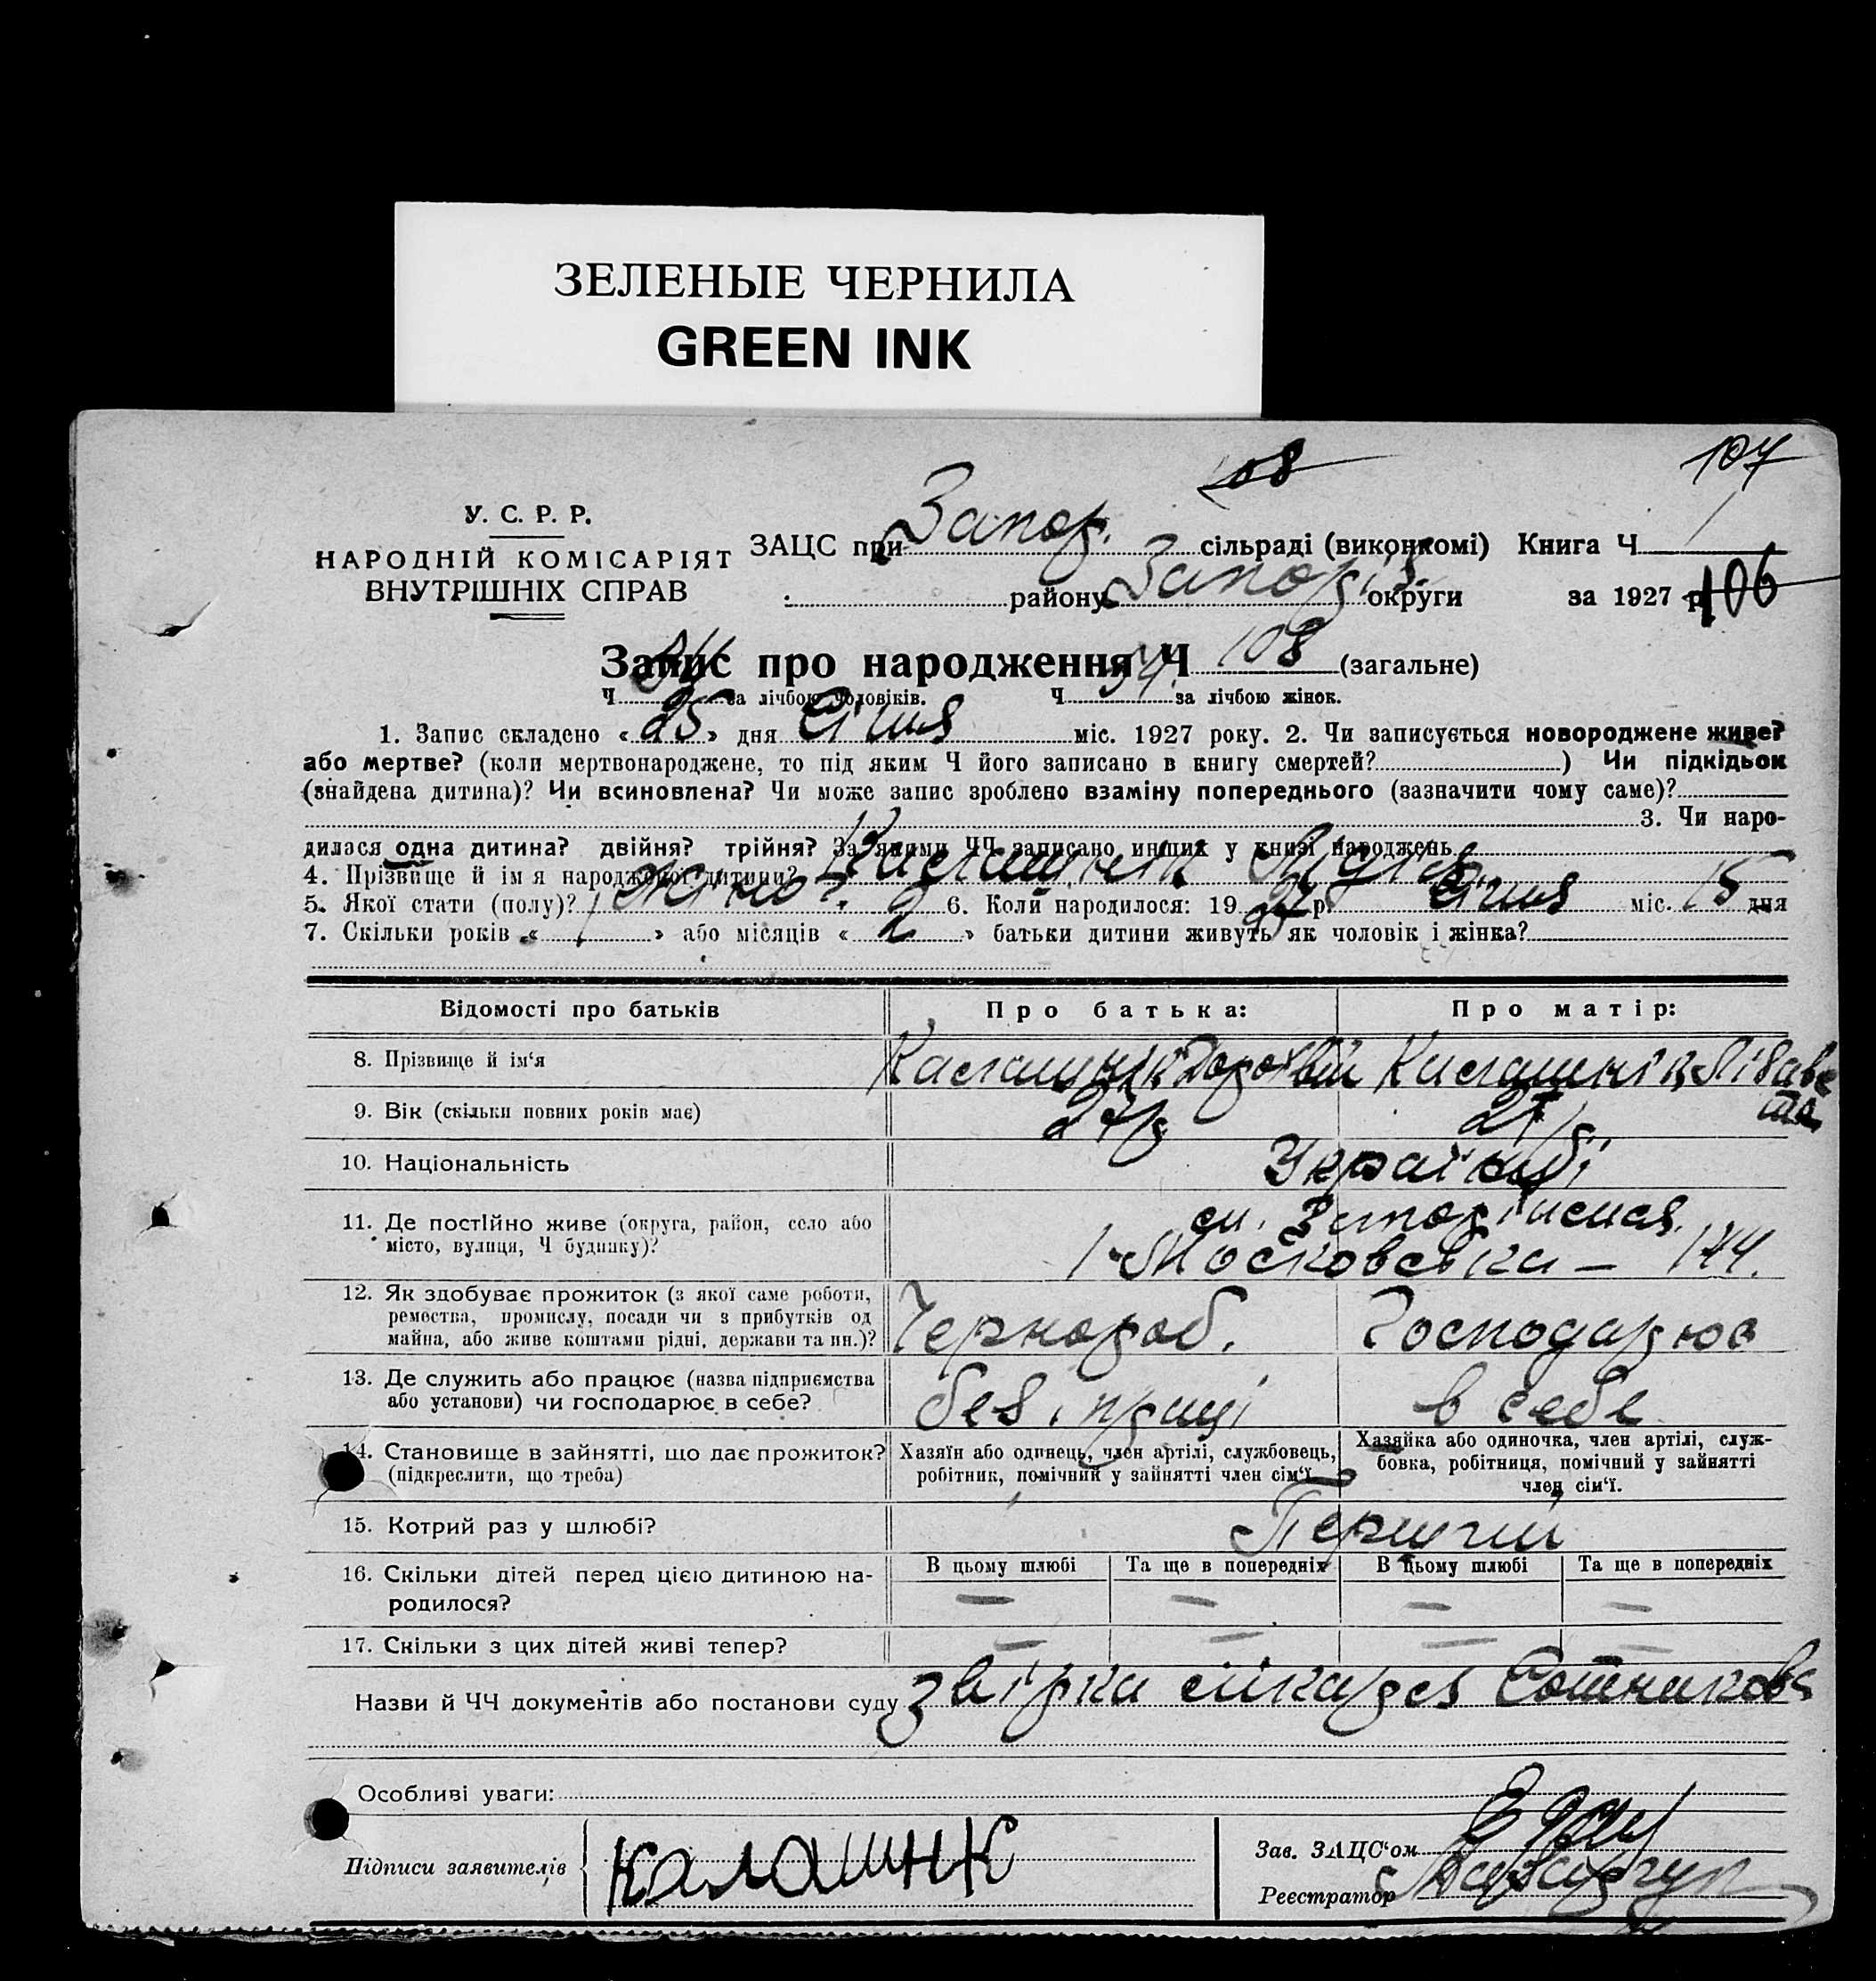 ЗЕЛЕНЫЕ ЧЕРНИЛА
GREEN INK
108
107
У. С. Р. Р.
НАРОДНІЙ КОМІСАРІЯТ
ВНУТРІШНІХ СПРАВ
ЗАЦС при Запор. сільраді (виконкомі) Книга Ч 1
району Запоріз. округи за 1927 р. 106
Запис про народження Ч 108 (загальне)
Ч за лічбою чоловіків. Ч 54. за лічбою жінок.
1. Запис складено « 25 » дня Січня міс. 1927 року. 2. Чи записується новороджене живе?
або мертве? (коли мертвонароджене, то під яким Ч його записано в книгу смертей? ) Чи підкідьок
(знайдена дитина)? Чи всиновлена? Чи може запис зроблено взаміну попереднього (зазначити чому саме)?
3. Чи наро-
дилася одна дитина? двійня? трійня? За якими ЧЧ записано инших у книзі народжень
4. Прізвище й ім'я народженої дитини? Калашнік Лідія
5. Якої стати (полу)? жіно?. 6. Коли народилося: 19 27 р. Січня міс. 15 дня
7. Скільки років « 1 » або місяців « 2 » батьки дитини живуть як чоловік і жінка?
Відомості про батьків
Про батька:
Про матір:
8. Прізвище й ім'я
Калашнік Дорохвій
Калашнік Лізаве
та
9. Вік (скільки повних років має)
27 р
10. Національність
Українці
11. Де постійно живе (округа, район, село або
місто, вулиця, Ч будинку)?
м. Запоріжжя.
Московська – 174.
12. Як здобуває прожиток (з якої саме роботи,
ремества, промислу, посади чи з прибутків од
майна, або живе коштами рідні, держави та ин.)?
Чернороб.
Господарює
13. Де служить або працює (назва підприємства
або установи) чи господарює в себе?
без праці
в себе
14. Становище в зайнятті, що дає прожиток?
(підкреслити, що треба)
Хазяїн або одинець, член артілі, службовець,
робітник, помічний у зайнятті член сім'ї
Хазяйка або одиночка, член артілі, служ-
бовка, робітниця, помічний у зайнятті
член сім'ї.
15. Котрий раз у шлюбі?
Перший
16. Скільки дітей перед цією дитиною на-
родилося?
В цьому шлюбі
Та ще в попередніх
В цьому шлюбі
Та ще в попередніх
— — — —
17. Скільки з цих дітей живі тепер?
— — — —
Назви й ЧЧ документів або постанови суду звірка лікаря Сотникова
Особливі уваги:
Підписи заявителів
Калашнк
Зав. ЗАЦС'ом
Реєстратор